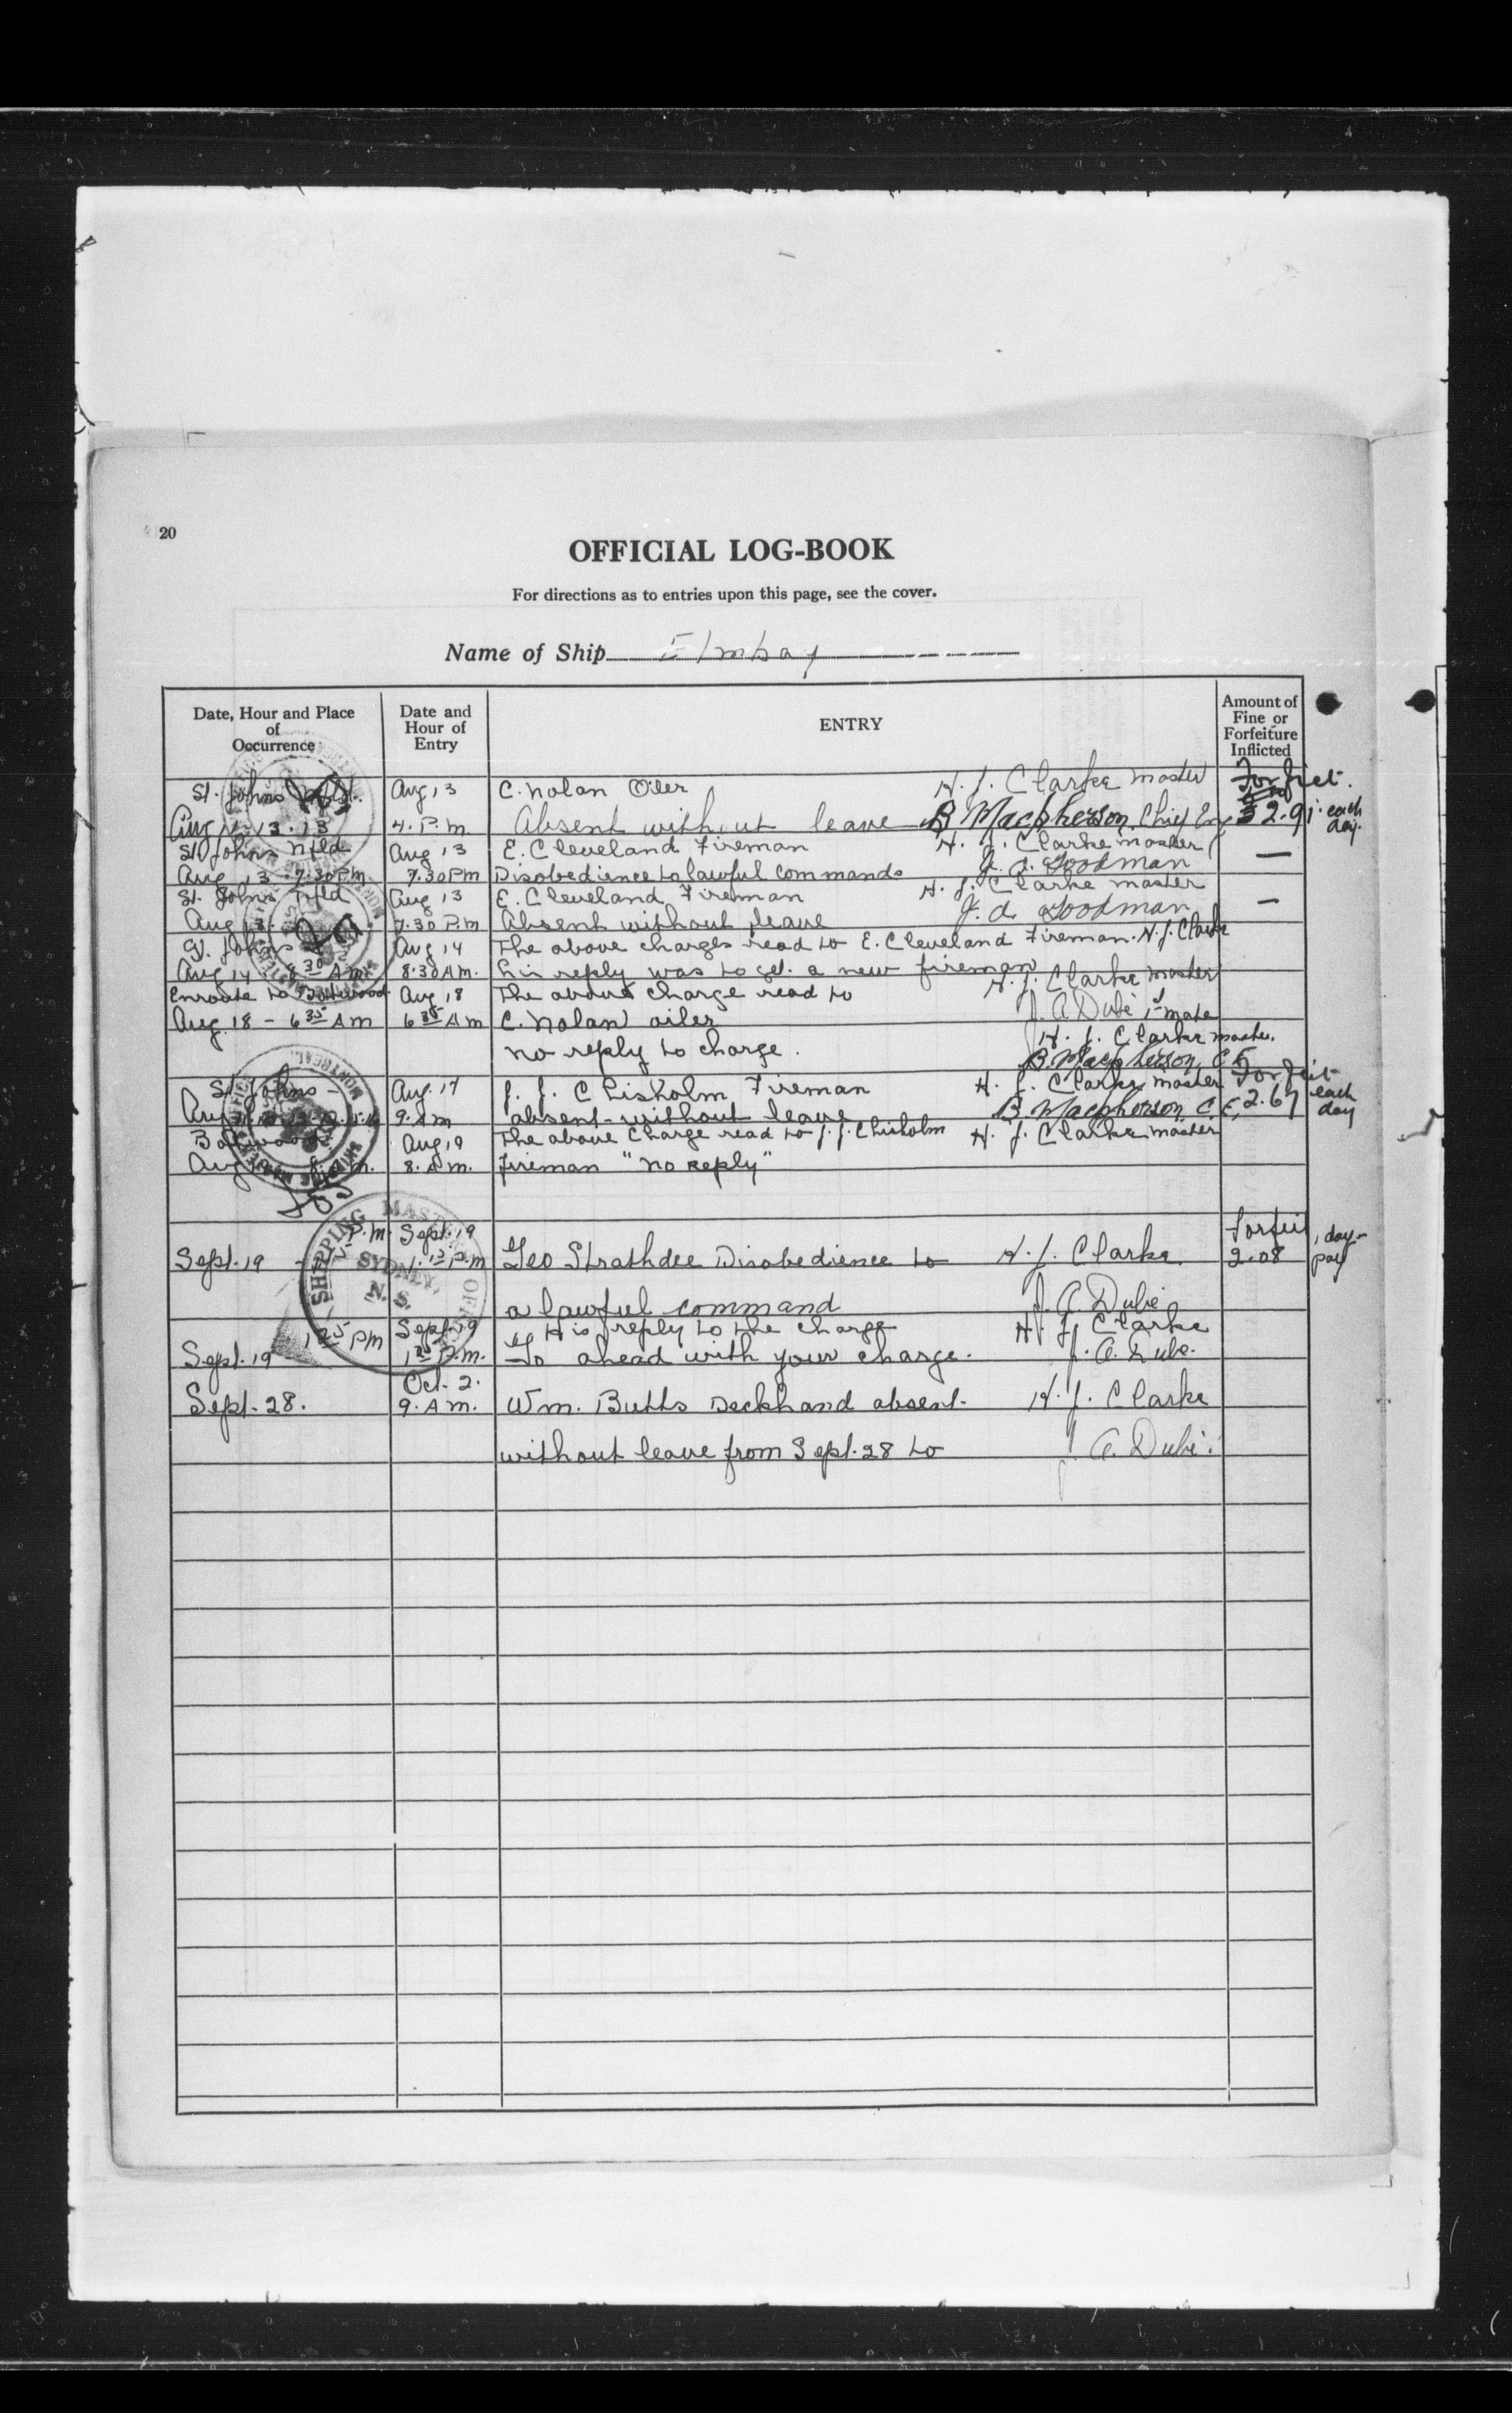 20
OFFICIAL LOG-BOOK
For directions as to entries upon this page, see the cover.
Name of Ship Elmbay
Date, Hour and Place of Occurrence
Date and Hour of Entry
ENTRY
Amount of Fine or Forfeiture Inflicted
St. Johns Nfld. Aug 13 C. Nolan Oiler H. J. Clarke master Forfeit.
13. 13 4. P.m Absent without leave B Macpherson Chief Eng 2.91 each day.
St. Johns Nfld Aug 13 E. Cleveland Fireman H. J. Clarke master —
Aug 13 7.30 P.m. 7.30 Pm Disobedience to lawful commands Goodman
St. Johns Nfld Aug 13 E. Cleveland Fireman H. J. Clarke master —
Aug 13. 7.30 P.m Absent without leave Goodman
St. Johns Aug 14 The above charges read to E. Cleveland Fireman. H. J. Clarke
Aug 14 8 30 A m. 8.30 A m. his reply was to get a new fireman
Enroute to Botwood Aug 18 The above charge read to H. J. Clarke master
Aug. 18 - 6 35 A m 6 35 A m C. Nolan oiler J. A Dubé 1st mate
no reply to charge. H. J. Clarke master.
B. Macpherson C E
St Johns - Aug. 17 J. J. Chisholm Fireman H. J. Clarke master Forfeit
Aug 9. A m absent without leave B Macpherson C. E. 2.67 each day
Botwood Aug 19 The above charge read to J. J. Chisholm H. J. Clarke master
Aug 19 8. A m. 8. A m. fireman "no reply"
P.m. Sept. 19 Forfeit
Sept. 19 P.m Geo Strathdee Disobedience to H. J. Clarke. 2.08 1 day- pay
a lawful command J. A. Dubé
SHIPPING MASTER'S OFFICE
SYDNEY,
N. S.
1 25 P m Sept. 19 His reply to the charge H. J. Clarke
Sept. 19 - 1 25 P.m. Go ahead with your charge. J. A. Dubé.
Oct. 2.
Sept. 28. 9. A m. Wm. Butts Deckhand absent. H. J. Clarke
without leave from Sept. 28 to J. A. Dubé.